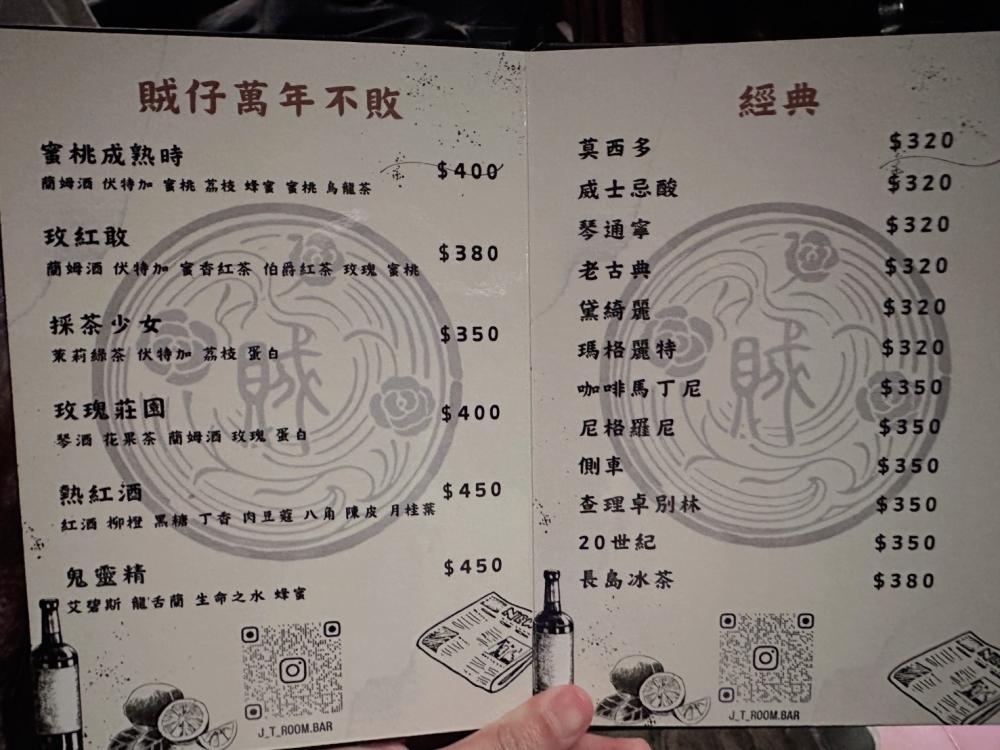 賊仔萬年不敗
蜜桃成熟時 $400
蘭姆酒 伏特加 蜜桃 荔枝 蜂蜜 蜜桃 烏龍茶
玫紅敢 $380
蘭姆酒 伏特加 蜜香紅茶 伯爵紅茶 玫瑰 蜜桃
採茶少女 $350
茉莉綠茶 伏特加 荔枝 蛋白
玫瑰莊園 $400
琴酒 花果茶 蘭姆酒 玫瑰 蛋白
熱紅酒 $450
紅酒 柳橙 黑糖 丁香 肉豆蔻 八角 陳皮 月桂葉
鬼靈精 $450
艾碧斯 龍舌蘭 生命之水 蜂蜜
J_T_ROOM.BAR
經典
莫西多 $320
威士忌酸 $320
琴通寧 $320
老古典 $320
黛綺麗 $320
瑪格麗特 $320
咖啡馬丁尼 $350
尼格羅尼 $350
側車 $350
查理卓別林 $350
20世紀 $350
長島冰茶 $380
J_T_ROOM.BAR
賊
賊